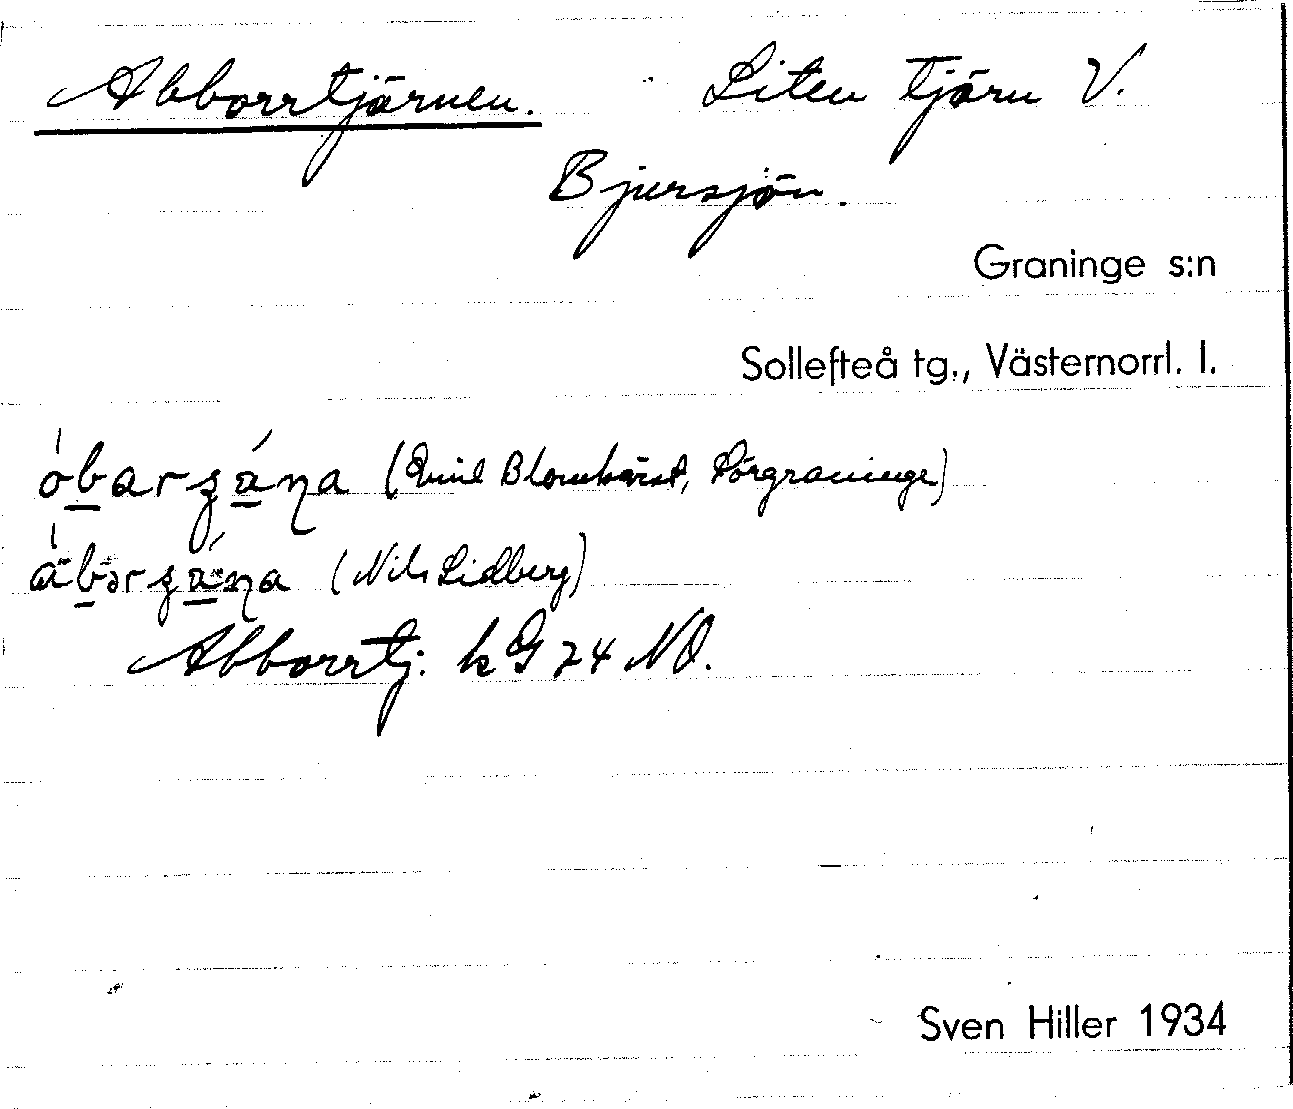 Abborrtjärnen. Liten tjärn V.
Bjursjön.
Graninge s:n
Sollefteå tg., Västernorrl. l.
(Emil Blomkvist, Sörgraninge)
(Nils Lidberg)
Abborrtj. k G 24 NO.
Sven Hiller 1934